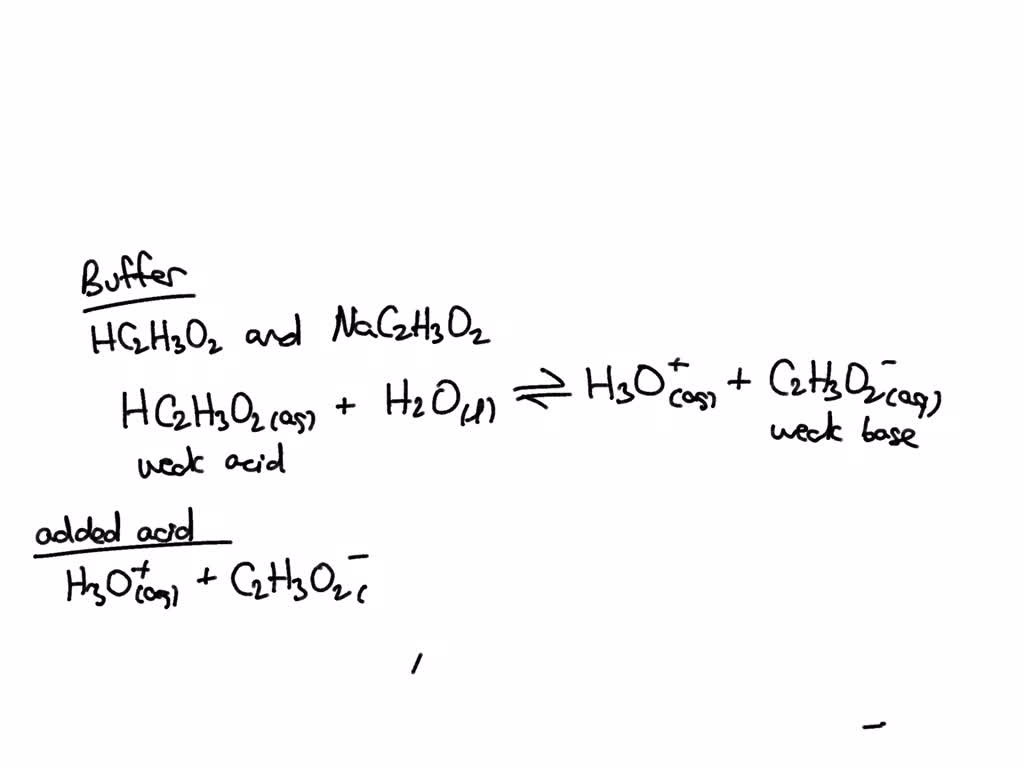 Buffer
HC₂H₃O₂ and NaC₂H₃O₂
HC₂H₃O₂(aq) + H₂O(l) ⇌ H₃O⁺(aq) + C₂H₃O₂⁻(aq)
weak acid weak base
added acid
H₃O⁺(aq) + C₂H₃O₂⁻(